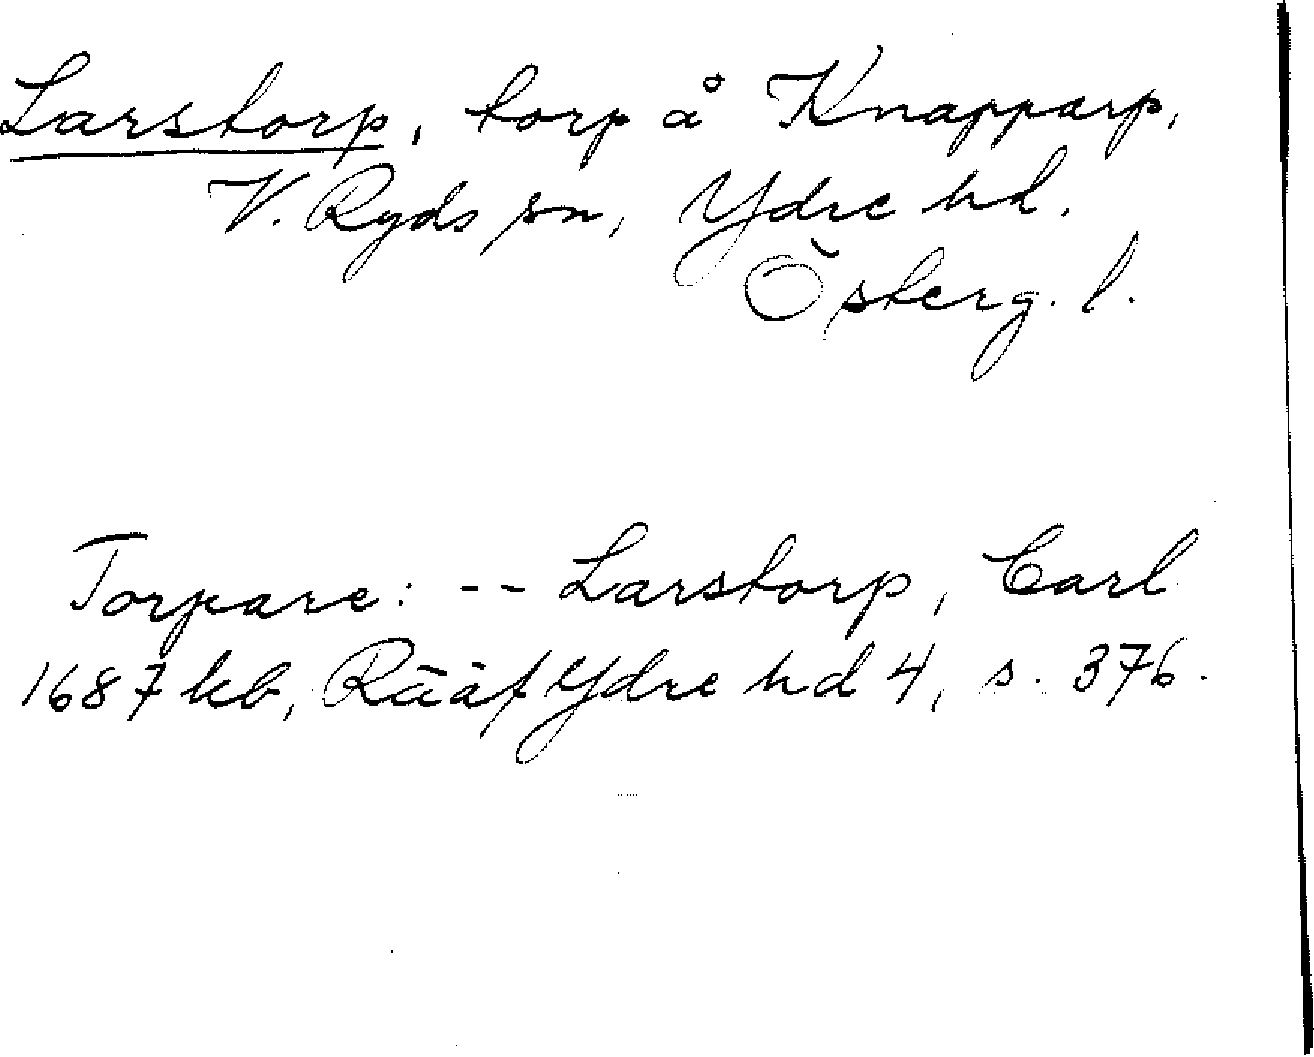 Larstorp, torp å Knapparp,
V. Ryds sn, Ydre hd.
Österg. l.
Torpare: -- Larstorp, Carl
1687 kb, Rääf Ydre hd 4, s. 376.